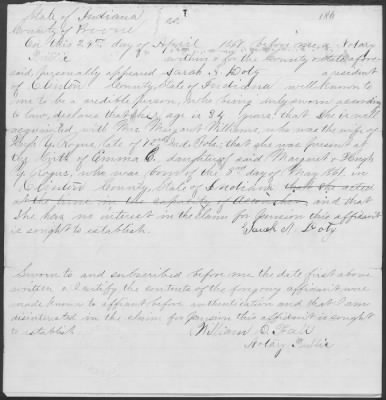 State of Indiana } 186
County of Boone } ss
On this 29th day of April 1867 before me a Notary
Public within & for the County & State afore-
said personally appeared Sarah A. Doty a resident
of Clinton County, State of Indiana well known to
me to be a credible person, who being duly sworn according
to law, declares that her age is 34 years that She is well
acquainted with Mrs. Margaret Williams, who was the wife of
Hugh G. Rogus, late of Ind. Vols. that she was present at
the birth of Emma C. daughter of said Margaret & Hugh
G. Rogus, who was born of the 3rd day of May 1861 in
Clinton County, State of Indiana that she acted
at the time in the capacity of and that
She has no interest in the claim for pension this affidavit
is sought to establish. Sarah A. Doty
Sworn to and subscribed before me the date first above
written & I certify the contents of the forgoing affidavit were
made known to affiant before authentication and that I am
disinterested in the claim for pension this affidavit is sought
to establish. William D.
Notary Public